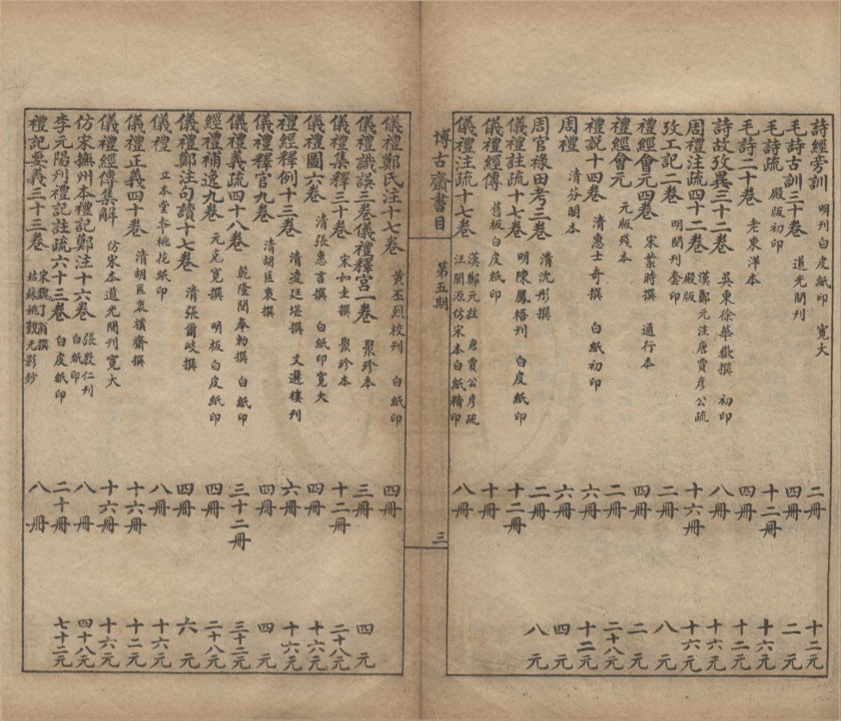 詩經旁訓 明刊白皮紙印 寬大 二冊 十二元
毛詩古訓三十卷 道光間刊 四冊 二元
毛詩疏 殿版初印 十二冊 十六元
毛詩二十卷 老東洋本 四冊 十二元
詩故攷異三十二卷 吳東徐華嶽撰 初印 八冊 十六元
周禮注疏四十二卷 漢鄭元注唐賈彥公疏 殿版 十六冊 十六元
攷工記二卷 明閔刊套印 二冊 八元
禮經會元四卷 宋葉時撰 通行本 四冊 二元
禮經會元 元版殘本 二冊 二十八元
禮說十四卷 清惠士奇撰 白紙初印 六冊 十二元
周禮 清芬閣本 六冊 四元
周官祿田考三卷 清沈彤撰 二冊 八元
儀禮註疏十七卷 明陳鳳梧刊 白皮紙印 十二冊
儀禮經傳 舊板白皮紙印 十冊
儀禮注疏十七卷 漢鄭元註 唐賈公彥疏 汪閬源仿宋本白紙精印 八冊
博古齋書目 第五期 三
儀禮鄭氏注十七卷 黃丕烈校刊 白紙印 四冊
儀禮識誤三卷儀禮釋宮一卷 聚珍本 三冊 四元
儀禮集釋三十卷 宋如圭撰 聚珍本 十二冊 二十八元
儀禮圖六卷 清張惠言撰 白紙印寬大 四冊 十六元
禮經釋例十三卷 清凌廷堪撰 文選樓刊 六冊 十六元
儀禮釋官九卷 清胡匡衷撰 四冊 四元
儀禮義疏四十八卷 乾隆間奉勅撰 白紙印 三十二冊 三十二元
經禮補逸九卷 元克寬撰 明板白皮紙印 四冊 二十八元
儀禮鄭注句讀十七卷 清張爾岐撰 四冊 六元
儀禮 立本堂李桃花紙印 八冊 十六元
儀禮正義四十卷 清胡匡衷樸齋撰 十六冊 十二元
儀禮經傳集解 仿宋本道光間刊寬大 十六冊 十六元
仿宋撫州本禮記鄭注十六卷 張敦仁刊 白紙印 八冊 四十八元
李元陽刊禮記註疏六十三卷 白皮紙印 二十冊 七十二元
禮記要義三十三卷 宋魏了翁撰 姑蘇姚覲元影鈔 八冊